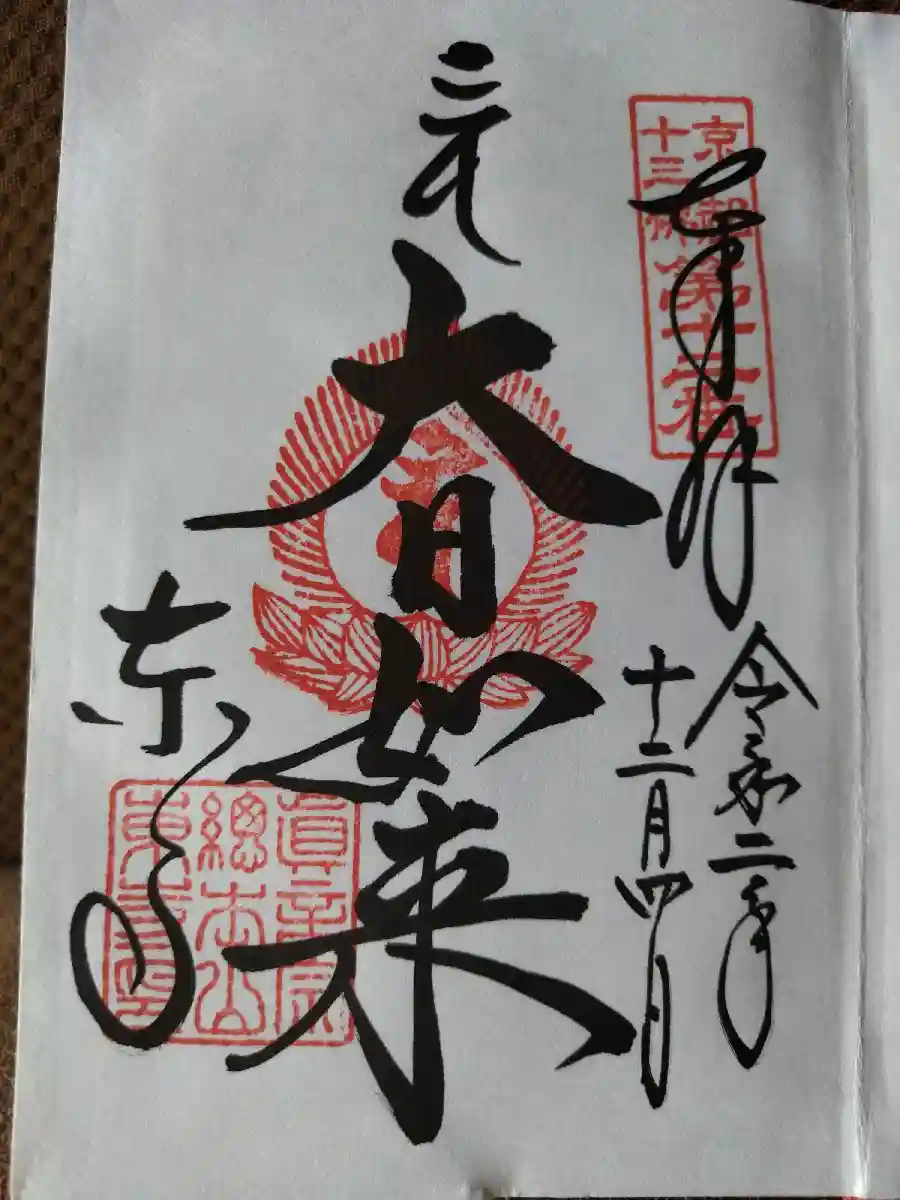 京都
十三佛
第十二番
奉拝
令和二年
十二月四日
大日如来
東寺
眞言宗
總本山